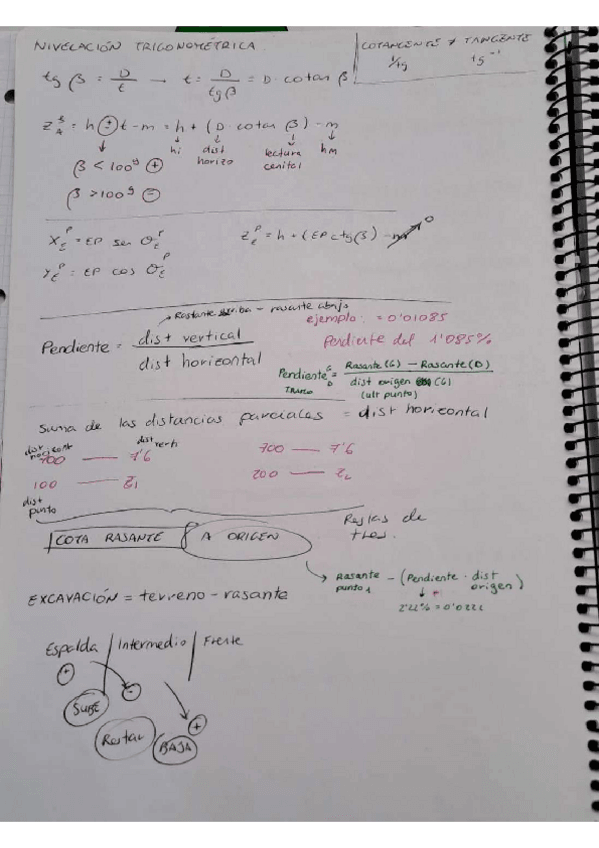 NIVELACIÓN TRIGONOMÉTRICA
COTANGENTE ≠ TANGENTE
1/tg    tg⁻¹
tg β = D/t → t = D/tgβ = D · cotan β
Z = h ⊕ t - m = h + (D · cotan β) - m
hi dist horizo lectura cenital hm
β < 100ᵍ ⊕
β > 100ᵍ ⊖
X = EP sen θ
Z = h + (EP ctg β) - m → 0
Y = EP cos θ
Rasante arriba - rasante abajo
ejemplo: = 0'01085
Pendiente = dist vertical / dist horizontal
Pendiente del 1'085%
Pendiente = Rasante (G) - Rasante (D) / dist origen (G)
TRAMO
(ult punto)
Suma de las distancias parciales = dist horizontal
dist horizont
dist verti
700 — 7'6
700 — 7'6
100 — Z1
200 — Z2
dist punto
Reglas de tres.
COTA RASANTE A ORIGEN
Rasante punto 1 - (Pendiente · dist origen)
EXCAVACIÓN = terreno - rasante
2'22% = 0'0222
Espalda / Intermedio / Frente
⊕ ⊖
SUBE
⊕
Restar
BAJA